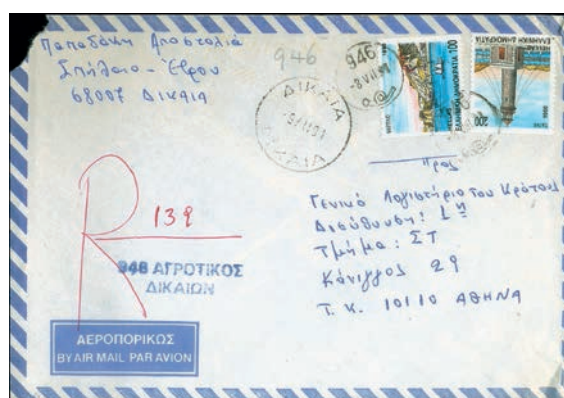 Παπαδάκη Αποστολία
Σπήλαιο - Έβρου
68007 ΔΙΚΑΙΑ
946
946
ΔΙΚΑΙΑ
ΔΙΚΑΙΑ
100
ΕΛΛΗΝΙΚΗ ΔΗΜΟΚΡΑΤΙΑ
ΕΛΛΗΝΙΚΗ ΔΗΜΟΚΡΑΤΙΑ
200
Προς
Γενικό Λογιστήριο του Κράτους
Διεύθυνση: 1η
Τμήμα: ΣΤ
Κάνιγγος 29
Τ. Κ. 10110 ΑΘΗΝΑ
R 139
946 ΑΓΡΟΤΙΚΟΣ
ΔΙΚΑΙΩΝ
ΑΕΡΟΠΟΡΙΚΩΣ
BY AIR MAIL PAR AVION